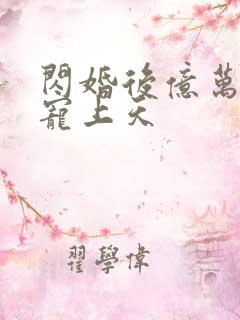 閃婚後億萬
寵上天
翟學偉